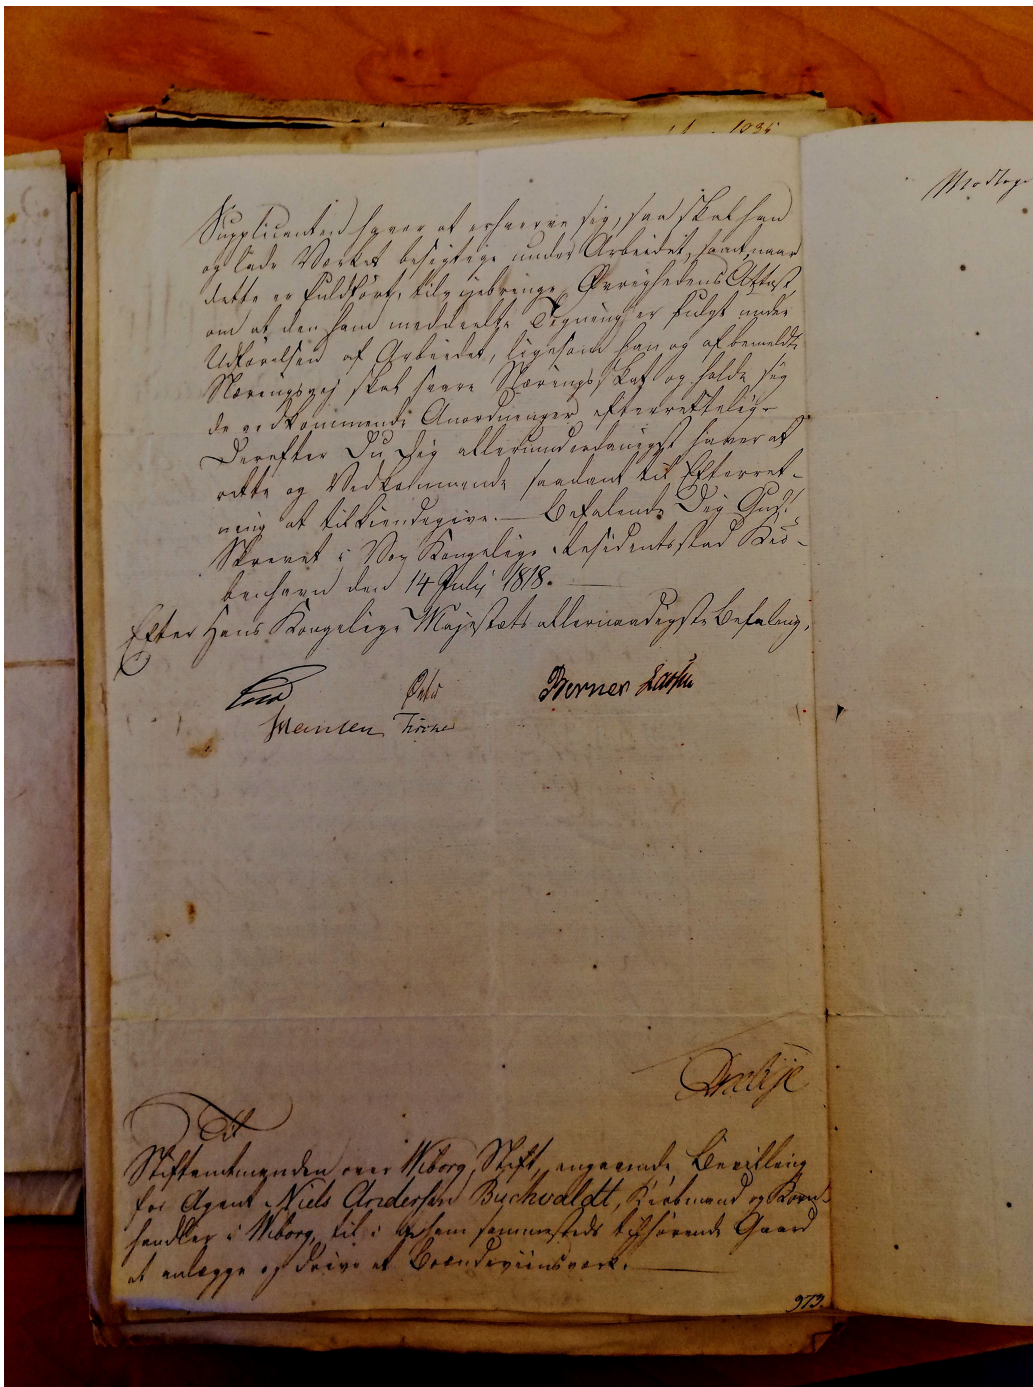 1835
Modtag
Supplicanten haver at erhverve sig, saa skal han
og lade Værket besigtige under Arbeidet, samt, naar
dette er fuldført, tilveiebringe Øvrighedens Attest,
om at den ham meddeelte Tegning er fulgt under
Udførelsen af Arbeidet, ligesom han og af bemeldte
Næringsvej skal svare Næringsskat og holde sig
de vedkommende Anordninger efterrettelig.
Derefter Du Dig allerunderdanigst haver at
rette og Vedkommende saadant til Efterret-
ning at tilkiendegive. — Befalende Dig Gud!
Skrevet i Vor Kongelige Residentsstad Kiø-
benhavn den 14 Julij 1818.
Efter Hans Kongelige Majestæts allernaadigste Befaling,
Berner Lassen
Monrad
Til
Stiftamtmanden over Wiborg Stift, angaaende Bevilling
for Agent Niels Andersen Buchvaldt, Kiøbmand og Korn-
handler i Wiborg, til i en ham sammesteds tilhørende Gaard
at anlægge og drive et Brændeviinsværk.
973.